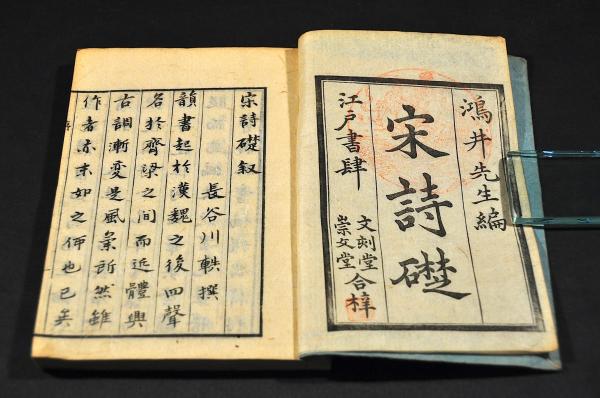 鴻井先生編
宋詩礎
江戸書肆
文刻堂
崇文堂
合梓
宋詩礎叙
長谷川軼撰
韻書起於漢魏之後四聲
名於齊梁之間而近體興
古調漸変是風氣所然雖
作者亦末如之何也已矣